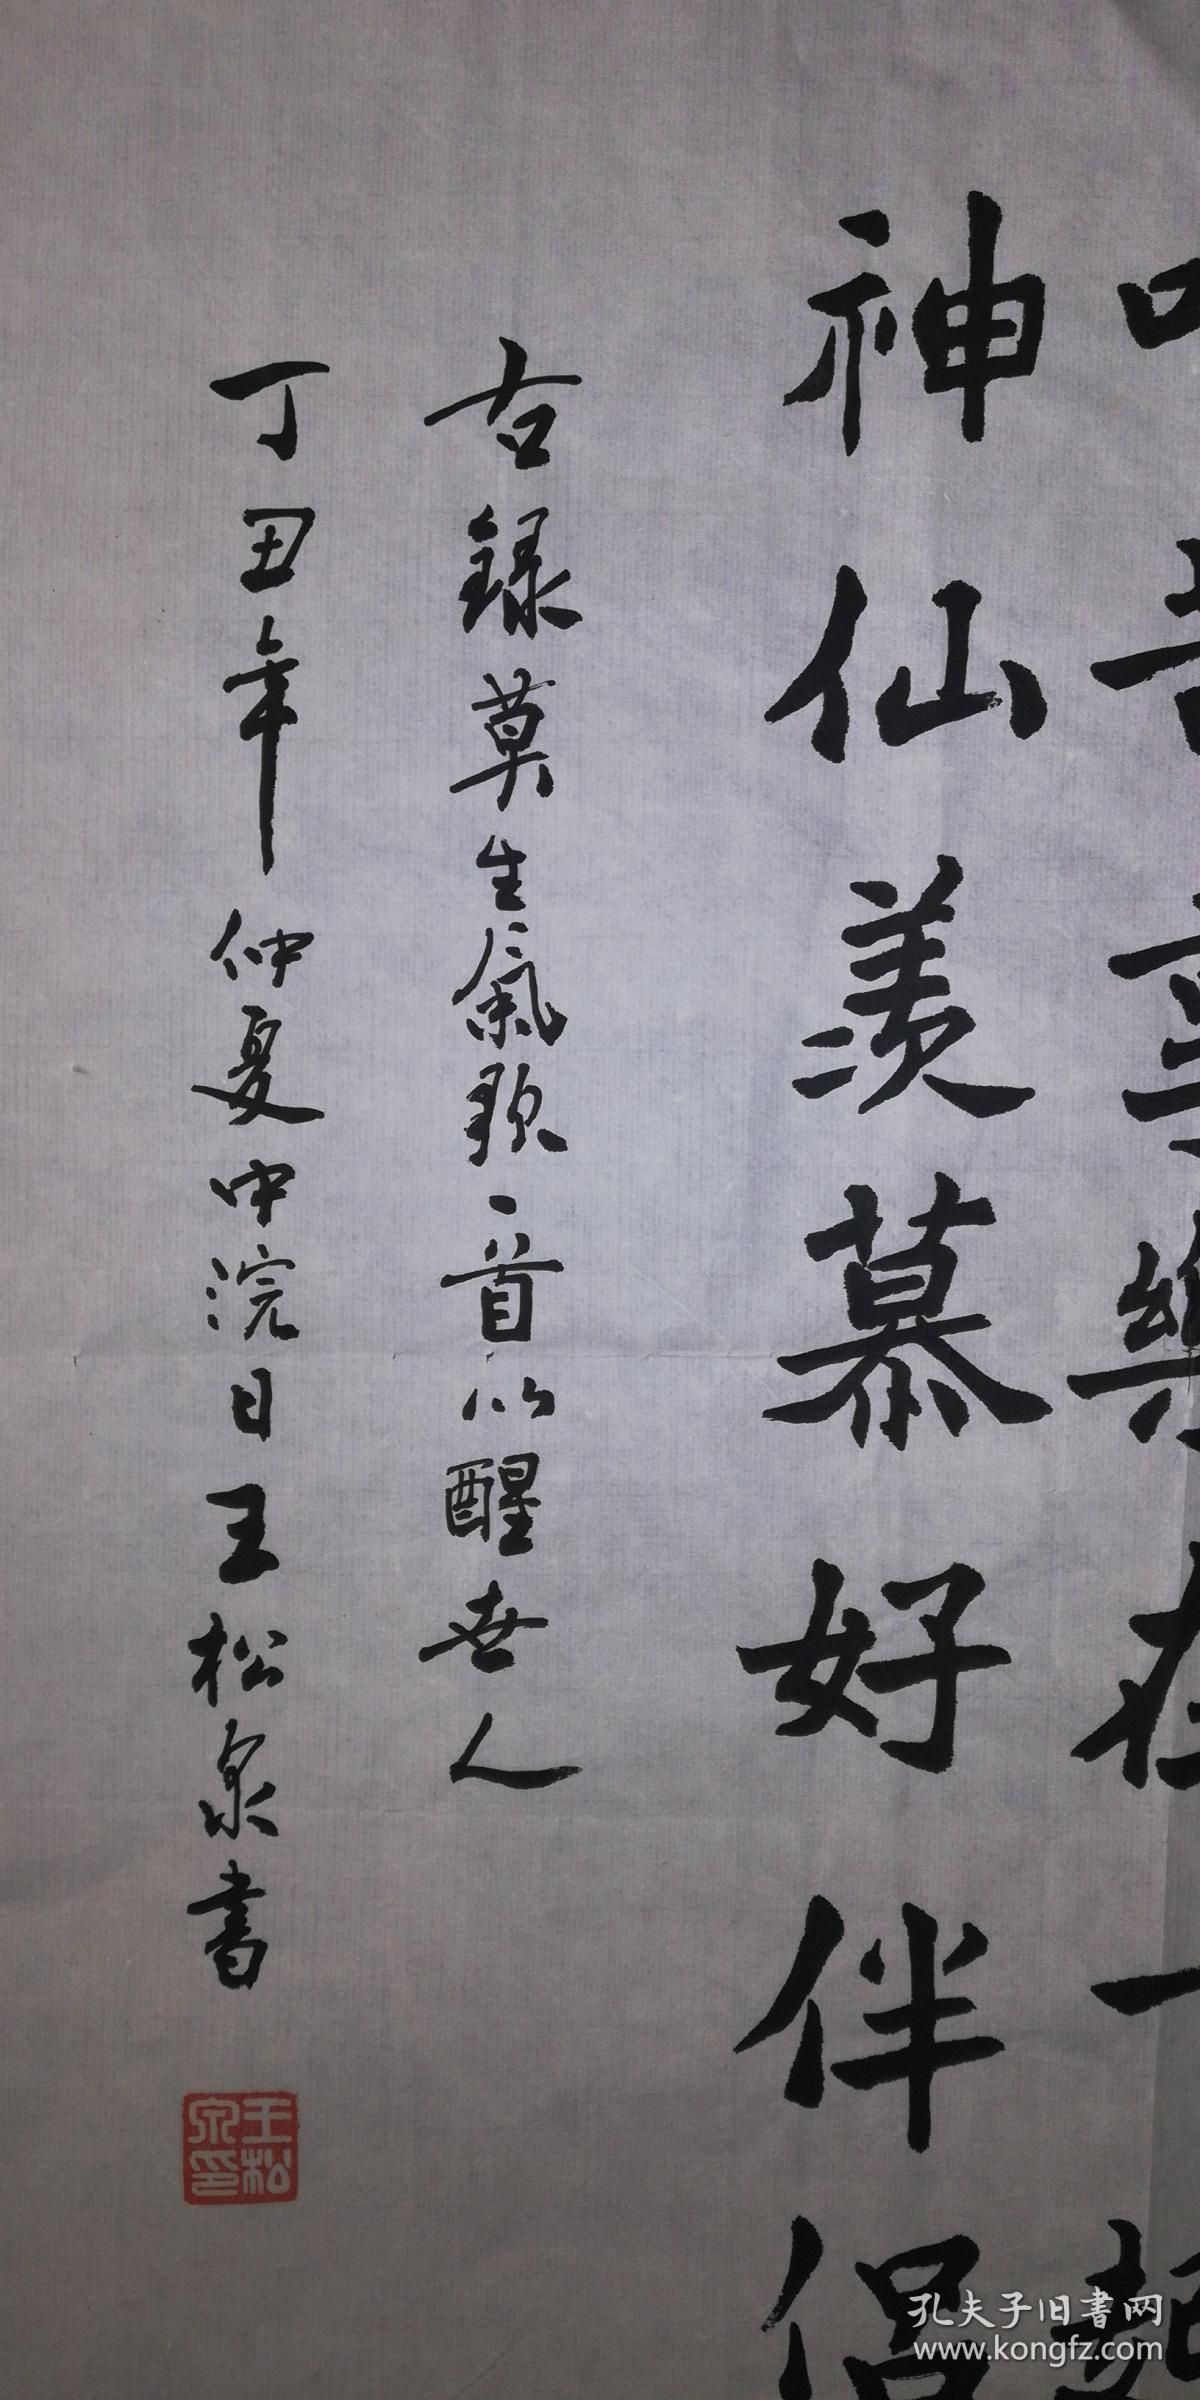 吟苦享樂在一起
神仙羡慕好伴侣
右録莫生氣歌一首以醒世人
丁丑年仲夏中浣日王松泉書
王松泉印
孔夫子旧書网
www.kongfz.com